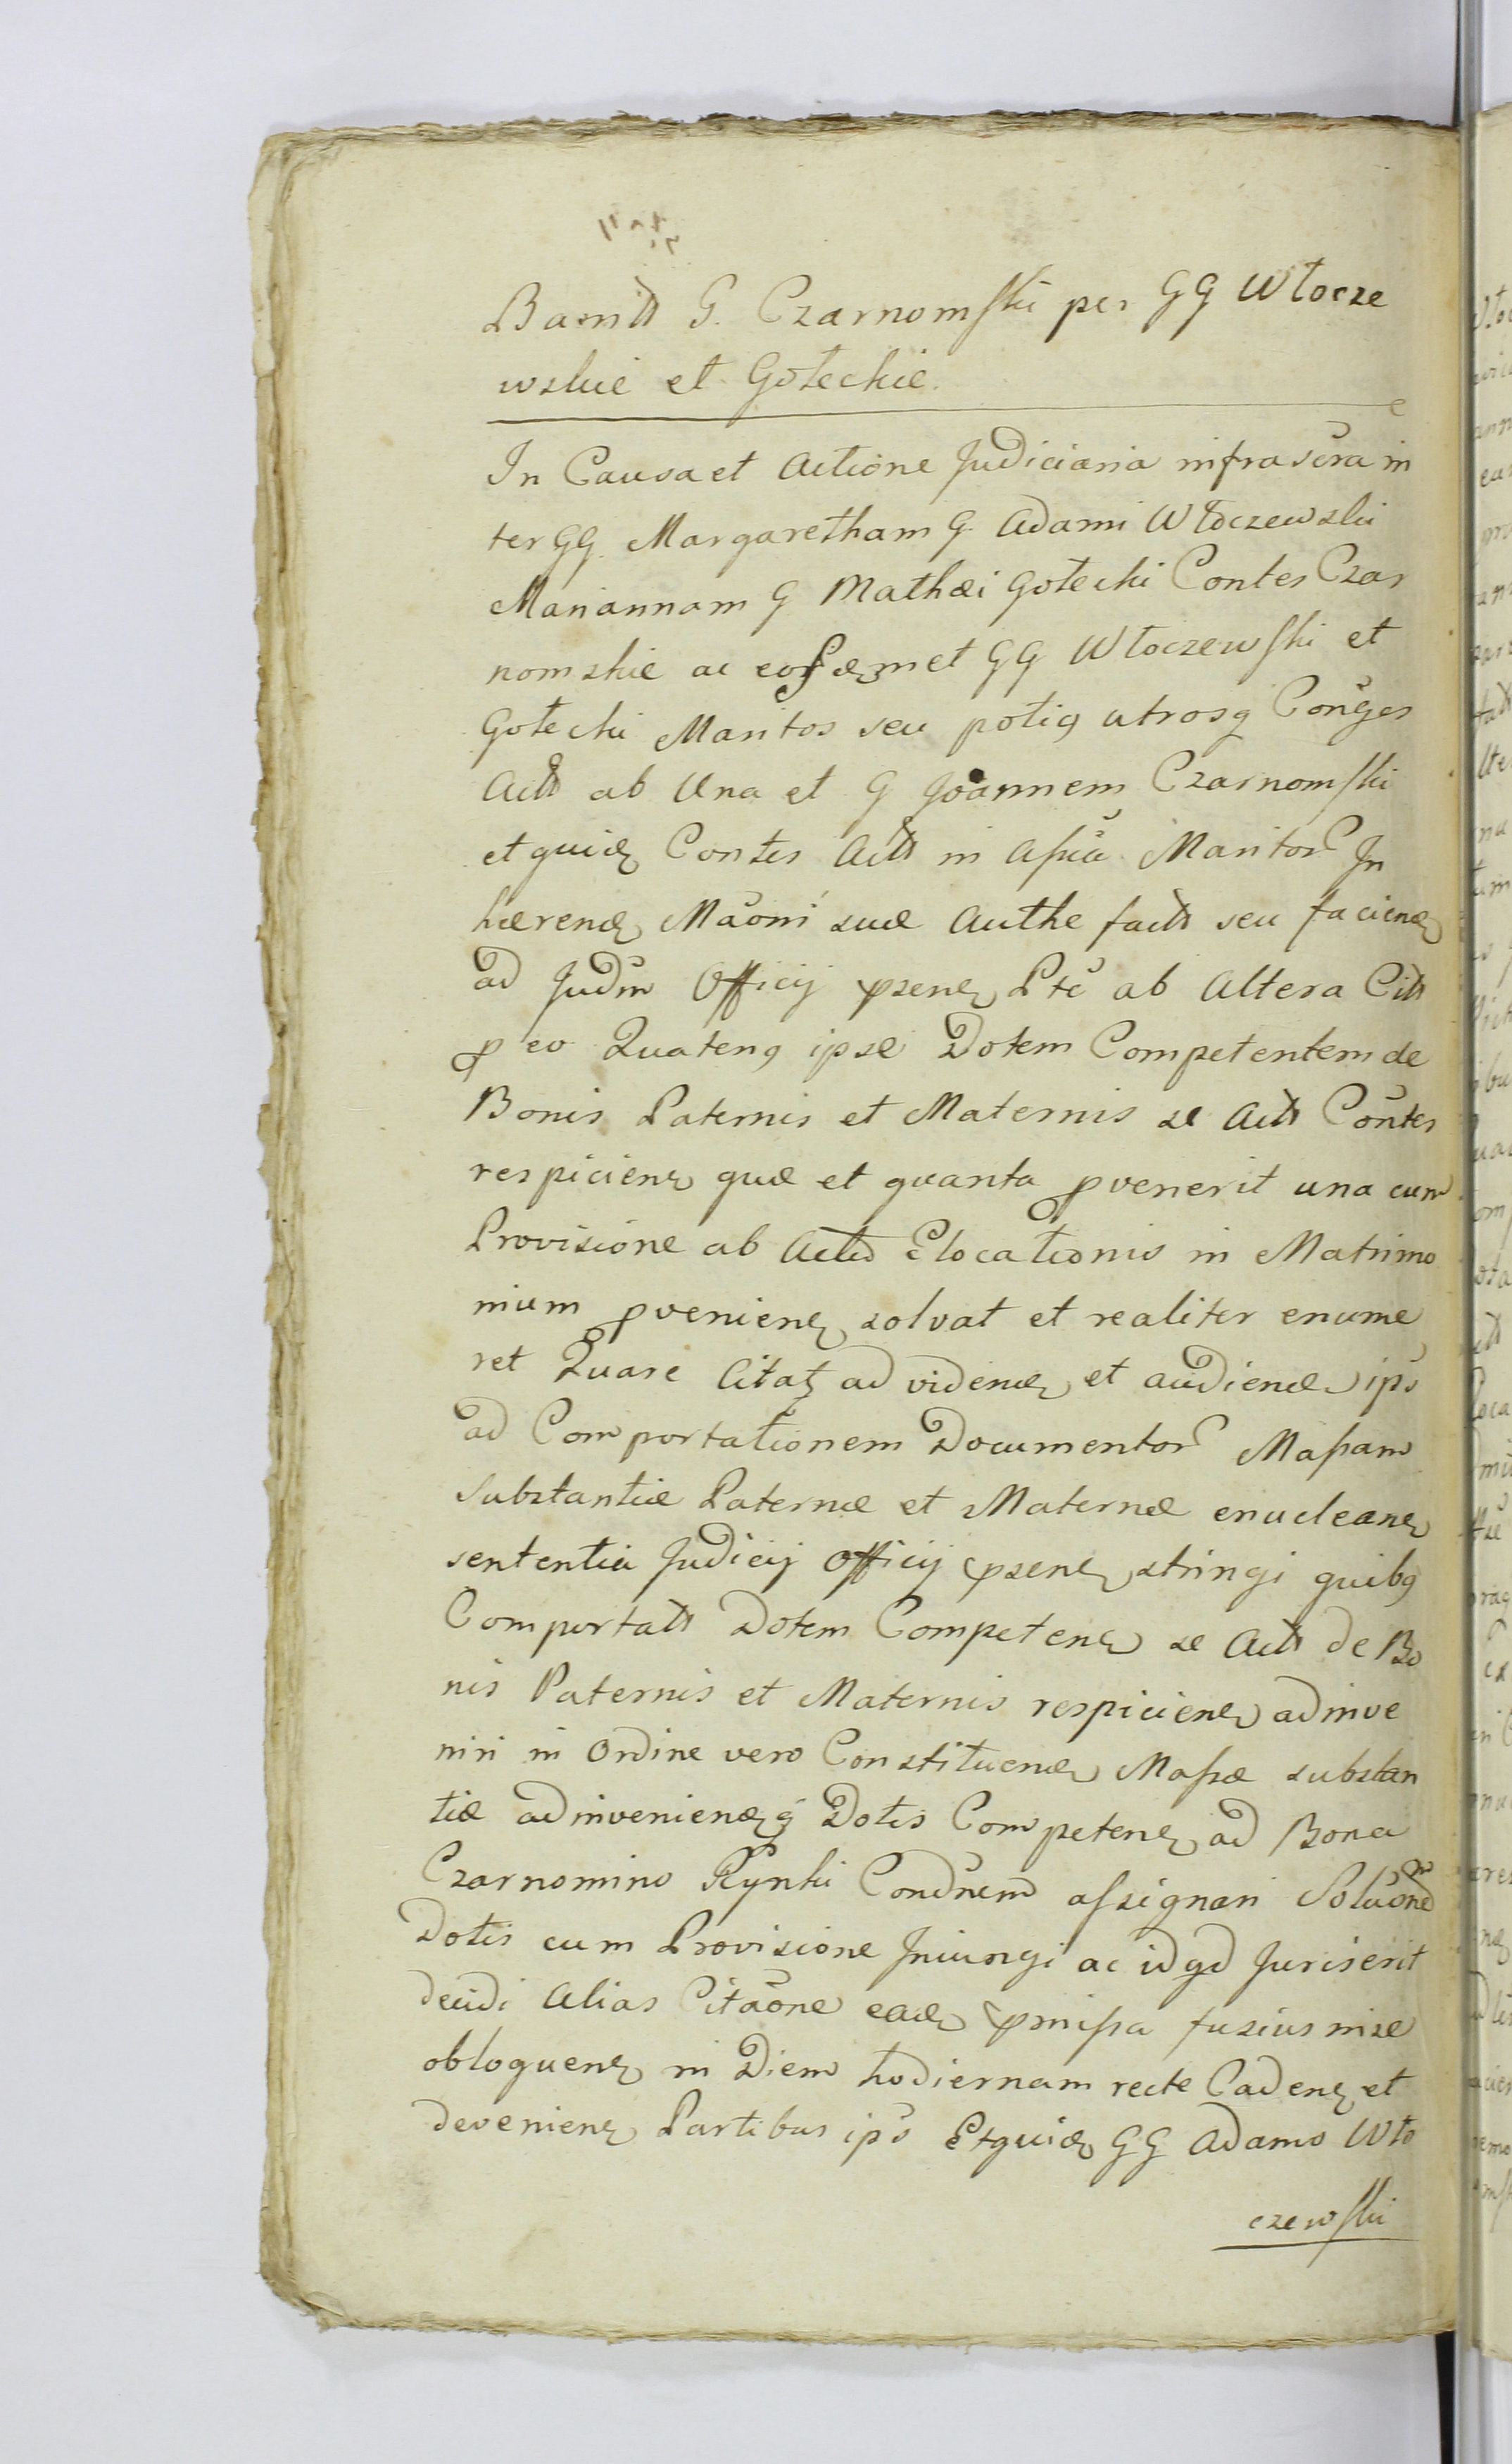 Banitt G. Czarnomski per GG Włocze
wskie et Gołeckie.
In Causa et Actione Judiciaria infrascra in
ter GG. Margaretham G. Adami Włoczewski
Mariannam G Mathæi Gołecki Contes Czar
nomskie ac eosdemet GG Włoczewski et
Gołecki Maritos seu potiq utrosq Conges
Actt ab Una et G Joannem Czarnomski
et quidē Contes Actt in Assia Maritor In
hærend Maoni suæ Authe factt seu faciend
ad Judm Officij psent Pte ab Altera Citt
p eo Quatenq ipse Dotem Competentem de
Bonis Paternis et Maternis se Actt Contes
respicient quæ et quanta pvenerit una cum
Provisione ab Actu Elocationis in Matrimo
nium pvenient solvat et realiter enume
ret Quare Citat ad vidend et audiend ips
ad Comportationem Documentor Massam
Substantiæ Paternæ et Maternæ enucleant
sententia Judicij Officij psent stringi quibq
Comportatt Dotem Competent se Actt de Bo
nis Paternis et Maternis respicient adinve
niri in Ordine vero Constituend Massæ substan
tiæ adinveniendq Dotis Competent ad Bona
Czarnomino Rynki Condnem assignari Soluonem
Dotis cum Provisione Iniungi ac idqd Juris erit
decidi Alias Citaone ead pmissa fusius in se
obloquent in Diem hodiernam recte Cadent et
devenient Partibus ips Etquid GG Adamo Wło
czewski